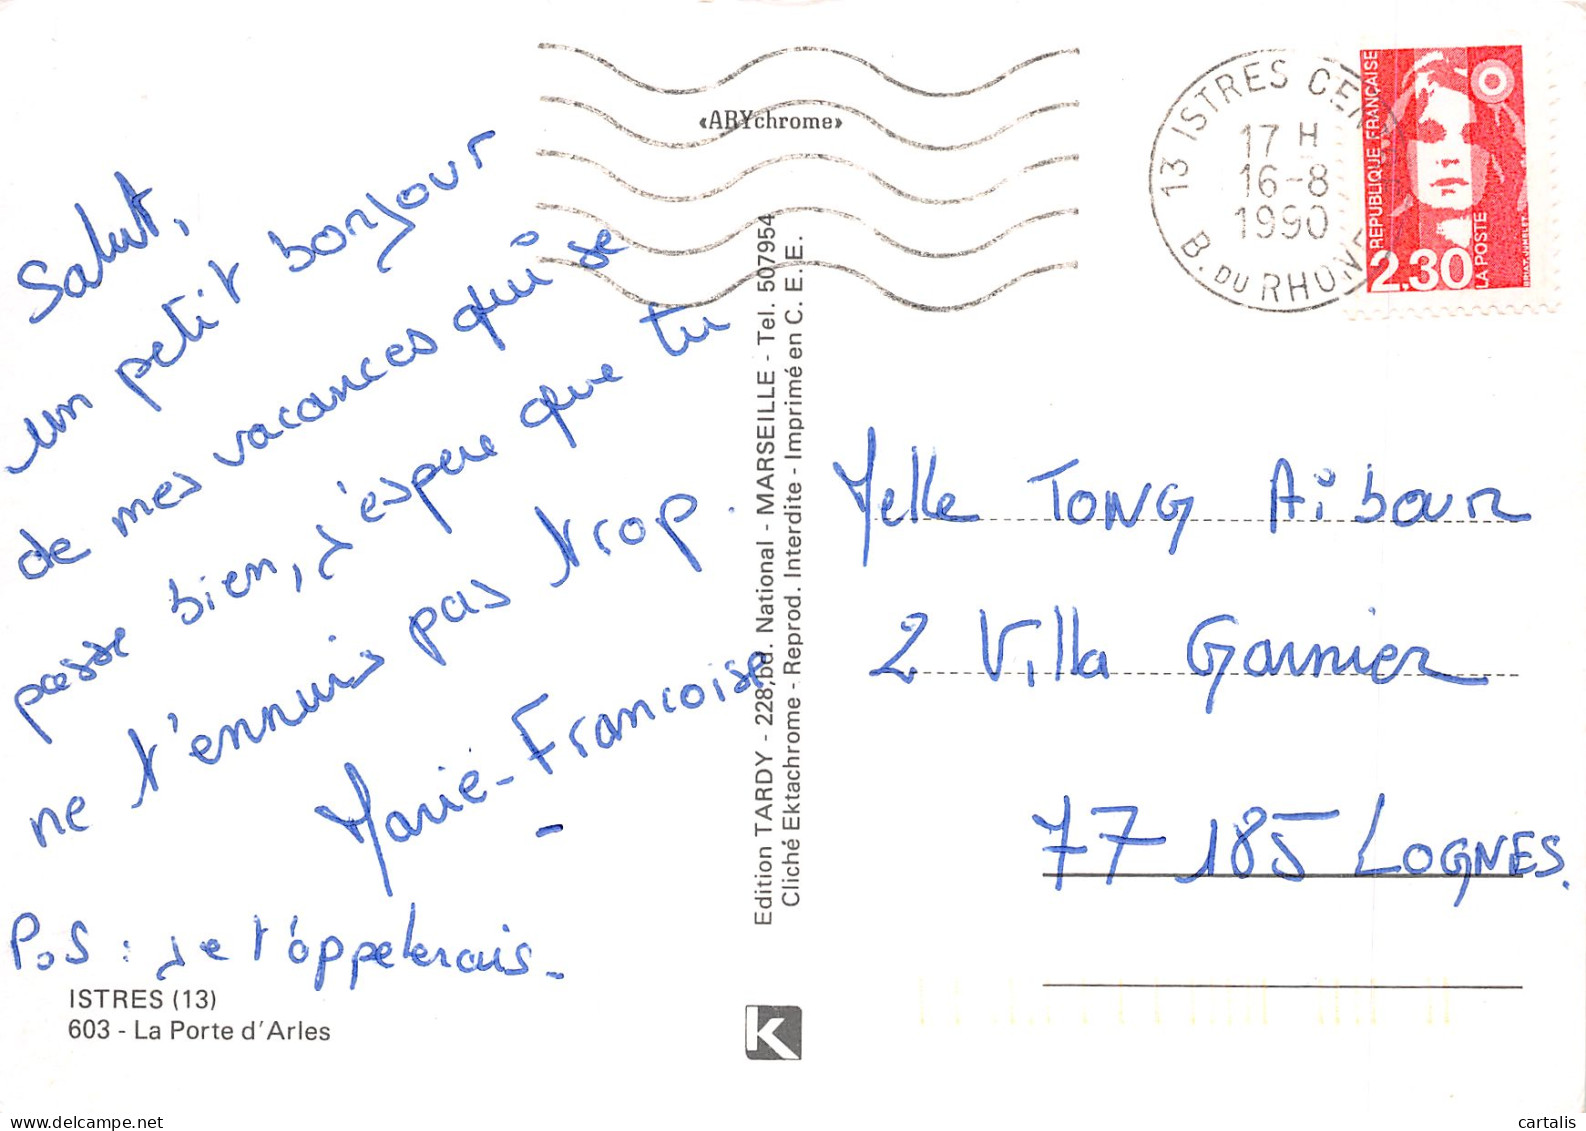 Salut,
un petit bonjour
de mes vacances qui se
passe bien, j'espere que tu
ne t'ennuis pas trop.
Marie-Francoise
P.S : je t'appelerais-
ISTRES (13)
603 - La Porte d'Arles
«ARYchrome»
Edition TARDY - 228, bd. National - MARSEILLE - Tel. 507954
Cliché Ektachrome - Reprod. Interdite - Imprimé en C. E. E.
K
13 ISTRES CEN
17 H
16-8
1990
B. DU RHONE
REPUBLIQUE FRANÇAISE
2.30
LA POSTE
Melle TONG Aibour
2 Villa Garnier
77 185 LOGNES.
cartalis